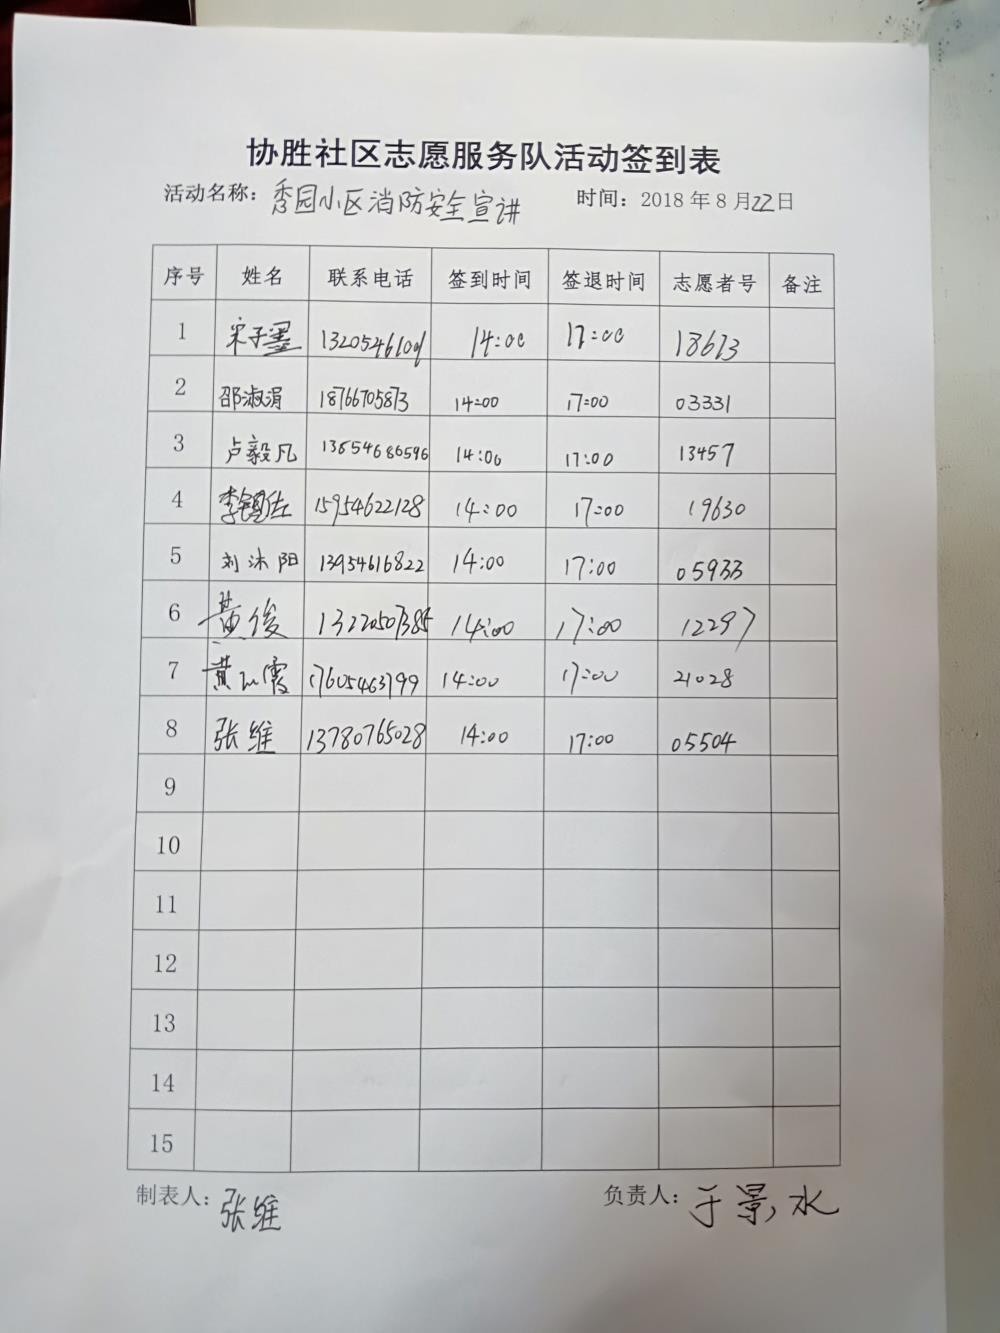 协胜社区志愿服务队活动签到表
活动名称：秀园小区消防安全宣讲 时间：2018年8月22日
序号 姓名 联系电话 签到时间 签退时间 志愿者号 备注
1 宋子墨 14:00 17:00 18613
2 邵淑涓 18766705873 14:00 17:00 03331
3 卢毅凡 13654686596 14:00 17:00 13457
4 15954622128 14:00 17:00 19630
5 刘沐阳 13954616822 14:00 17:00 05933
6 黄俊 13220507385 14:00 17:00 12297
7 17605463799 14:00 17:00 21028
8 张维 13780765028 14:00 17:00 05504
9
10
11
12
13
14
15
制表人：张维 负责人：于景水